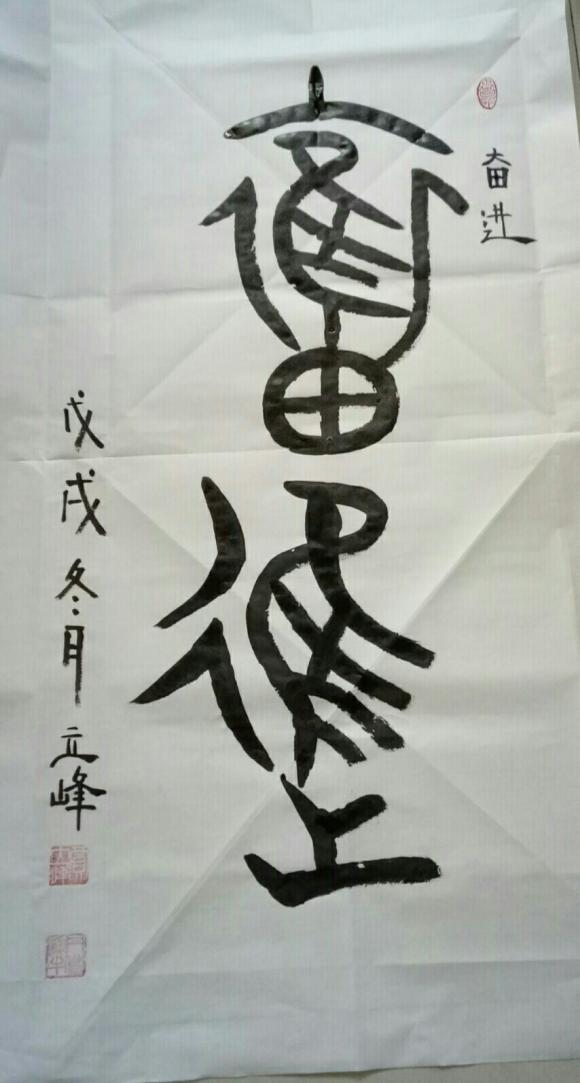 奋进
奮進
戊戌冬月立峰